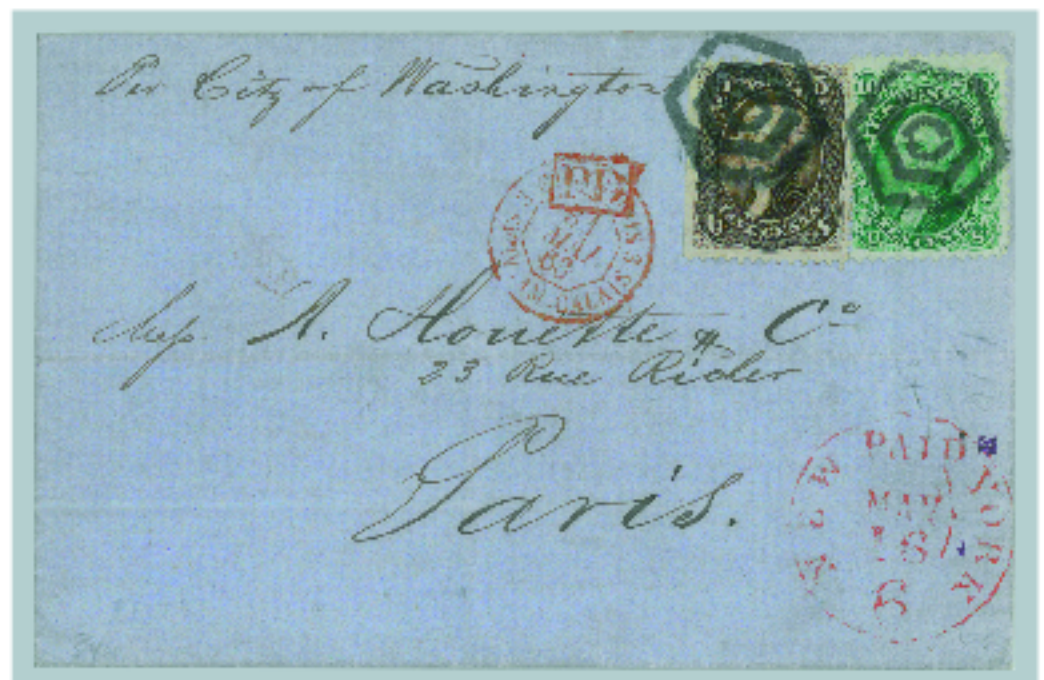 Per City of Washington
PD
27
MAI
63
AM. CALAIS
Mess. A. Honette & Co
23 Rue Rider
Paris.
NEW YORK
PAID
MAY
16
6